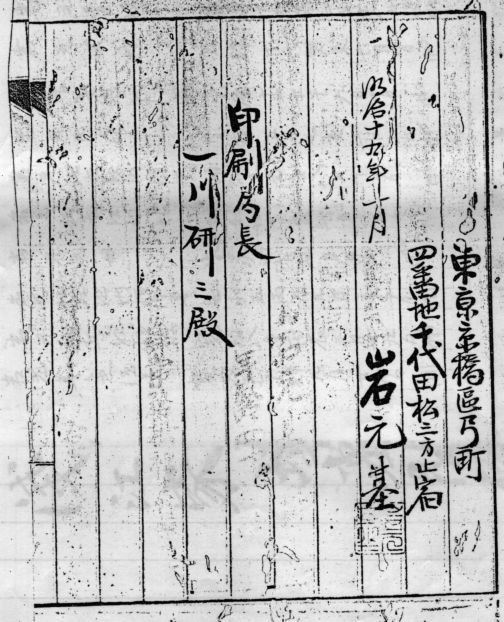 東京京橋區弓町
四番地千代田松三方止宿
岩元基
明治十九年十月
印刷局長
一川研三殿